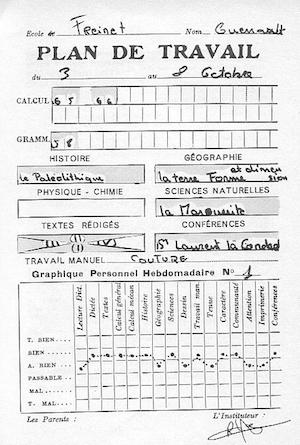 Ecole de Freinet Nom Guenault
PLAN DE TRAVAIL
du 3 au 8 Octobre
CALCUL 65 66
GRAMM. 58
HISTOIRE GÉOGRAPHIE
le Paléolithique la terre Forme et dimension
PHYSIQUE - CHIMIE SCIENCES NATURELLES
la Marguerite
TEXTES RÉDIGÉS CONFÉRENCES
St Laurent la
TRAVAIL MANUEL COUTURE
Graphique Personnel Hebdomadaire N° 1
Lecture Dict. Dictée Textes Calcul général Calcul mécan Histoire Géographie Sciences Dessin Travail man. Tenue Caractère Communauté Attention Imprimerie Conférences
T. BIEN....
BIEN.....
A. BIEN....
PASSABLE..
MAL.......
T. MAL....
Les Parents : L'Instituteur :